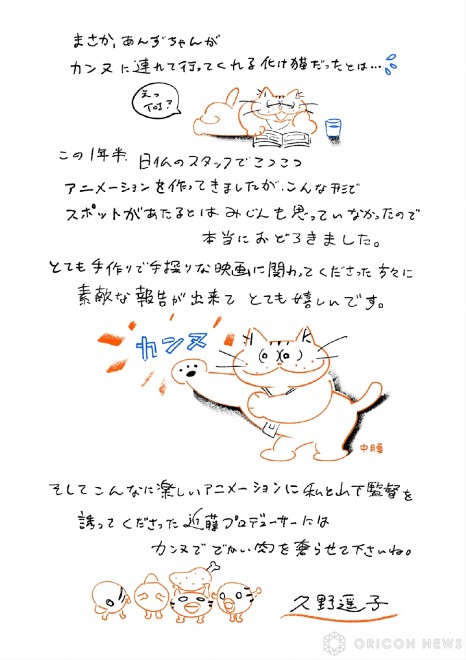 まさか、あんずちゃんが
カンヌに連れて行ってくれる化け猫だったとは…
えっ
何?
この1年半、日仏のスタッフでこつこつ
アニメーションを作ってきましたが、こんな形で
スポットがあたるとはみじんも思っていなかったので
本当におどろきました。
とても手作りで手探りな映画に関わってくださった方々に
素敵な報告が出来てとても嬉しいです。
カンヌ
そしてこんなに楽しいアニメーションに私と山下監督を
誘ってくださった近藤プロデューサーには
カンヌででかい肉を奢らせて下さいね。
久野遥子
ORICON NEWS